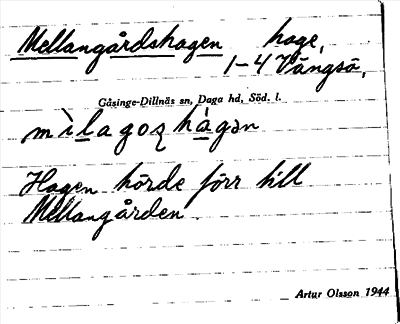 Mellangårdshagen hage,
1-4 Vängsö,
Gåsinge-Dillnäs sn, Daga hd, Söd. l.
mìlagoʂhàgən
Hagen hörde förr till
Mellangården.
Artur Olsson 1944